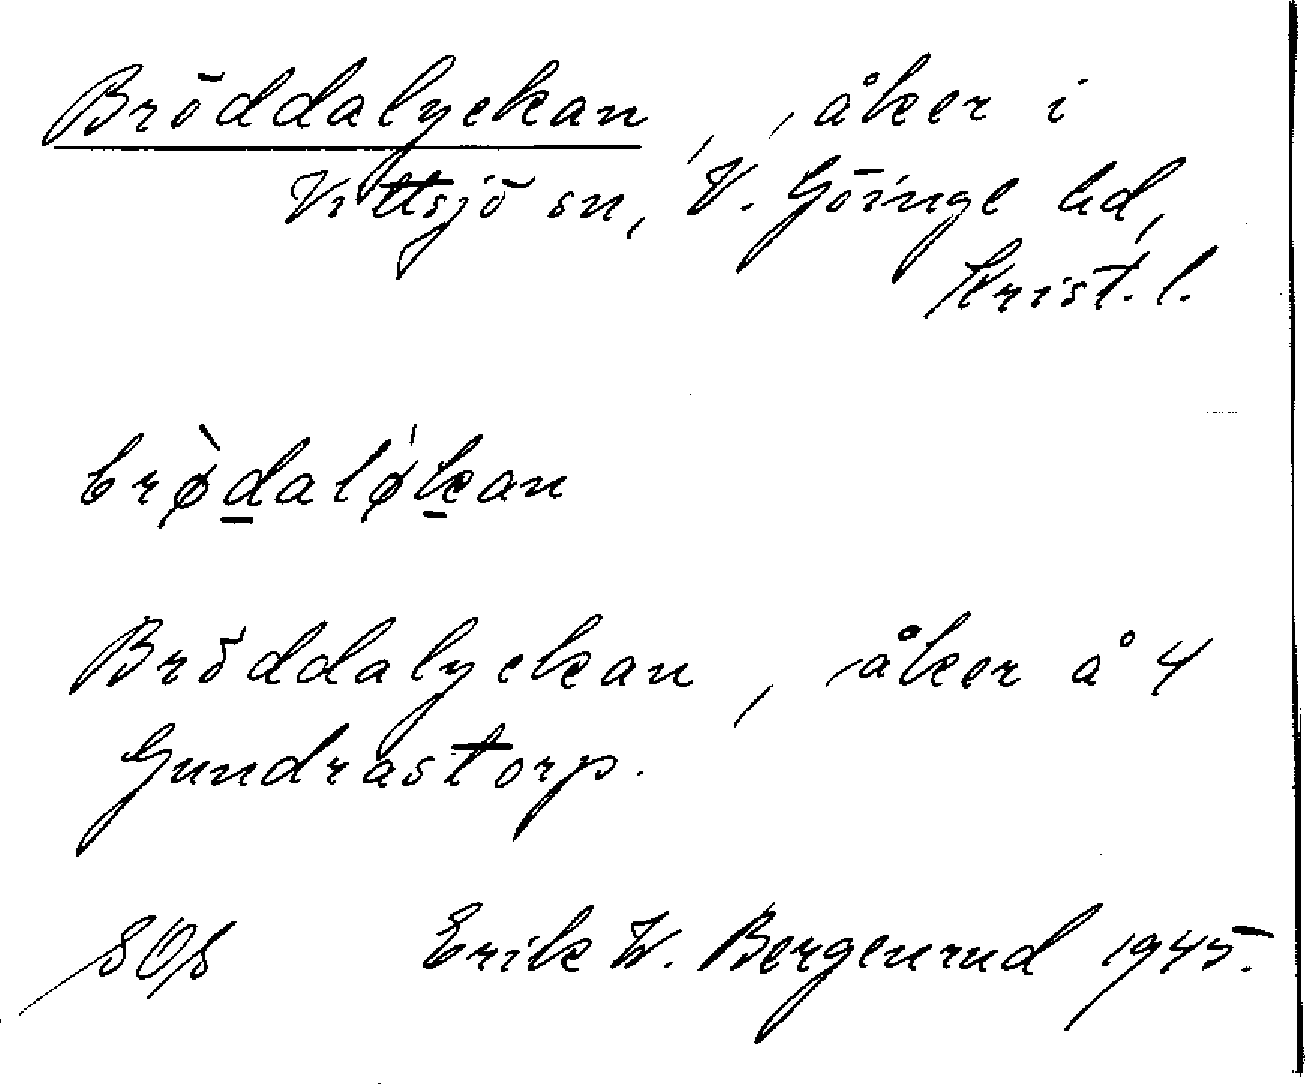 Bröddalyckan, åker i
Vittsjö sn, V. Göinge hd,
Krist. l.
brø̀dalǿkan
Bröddalyckan, åker å 4
Gundrastorp.
SOS Erik W. Bergenrud 1945.